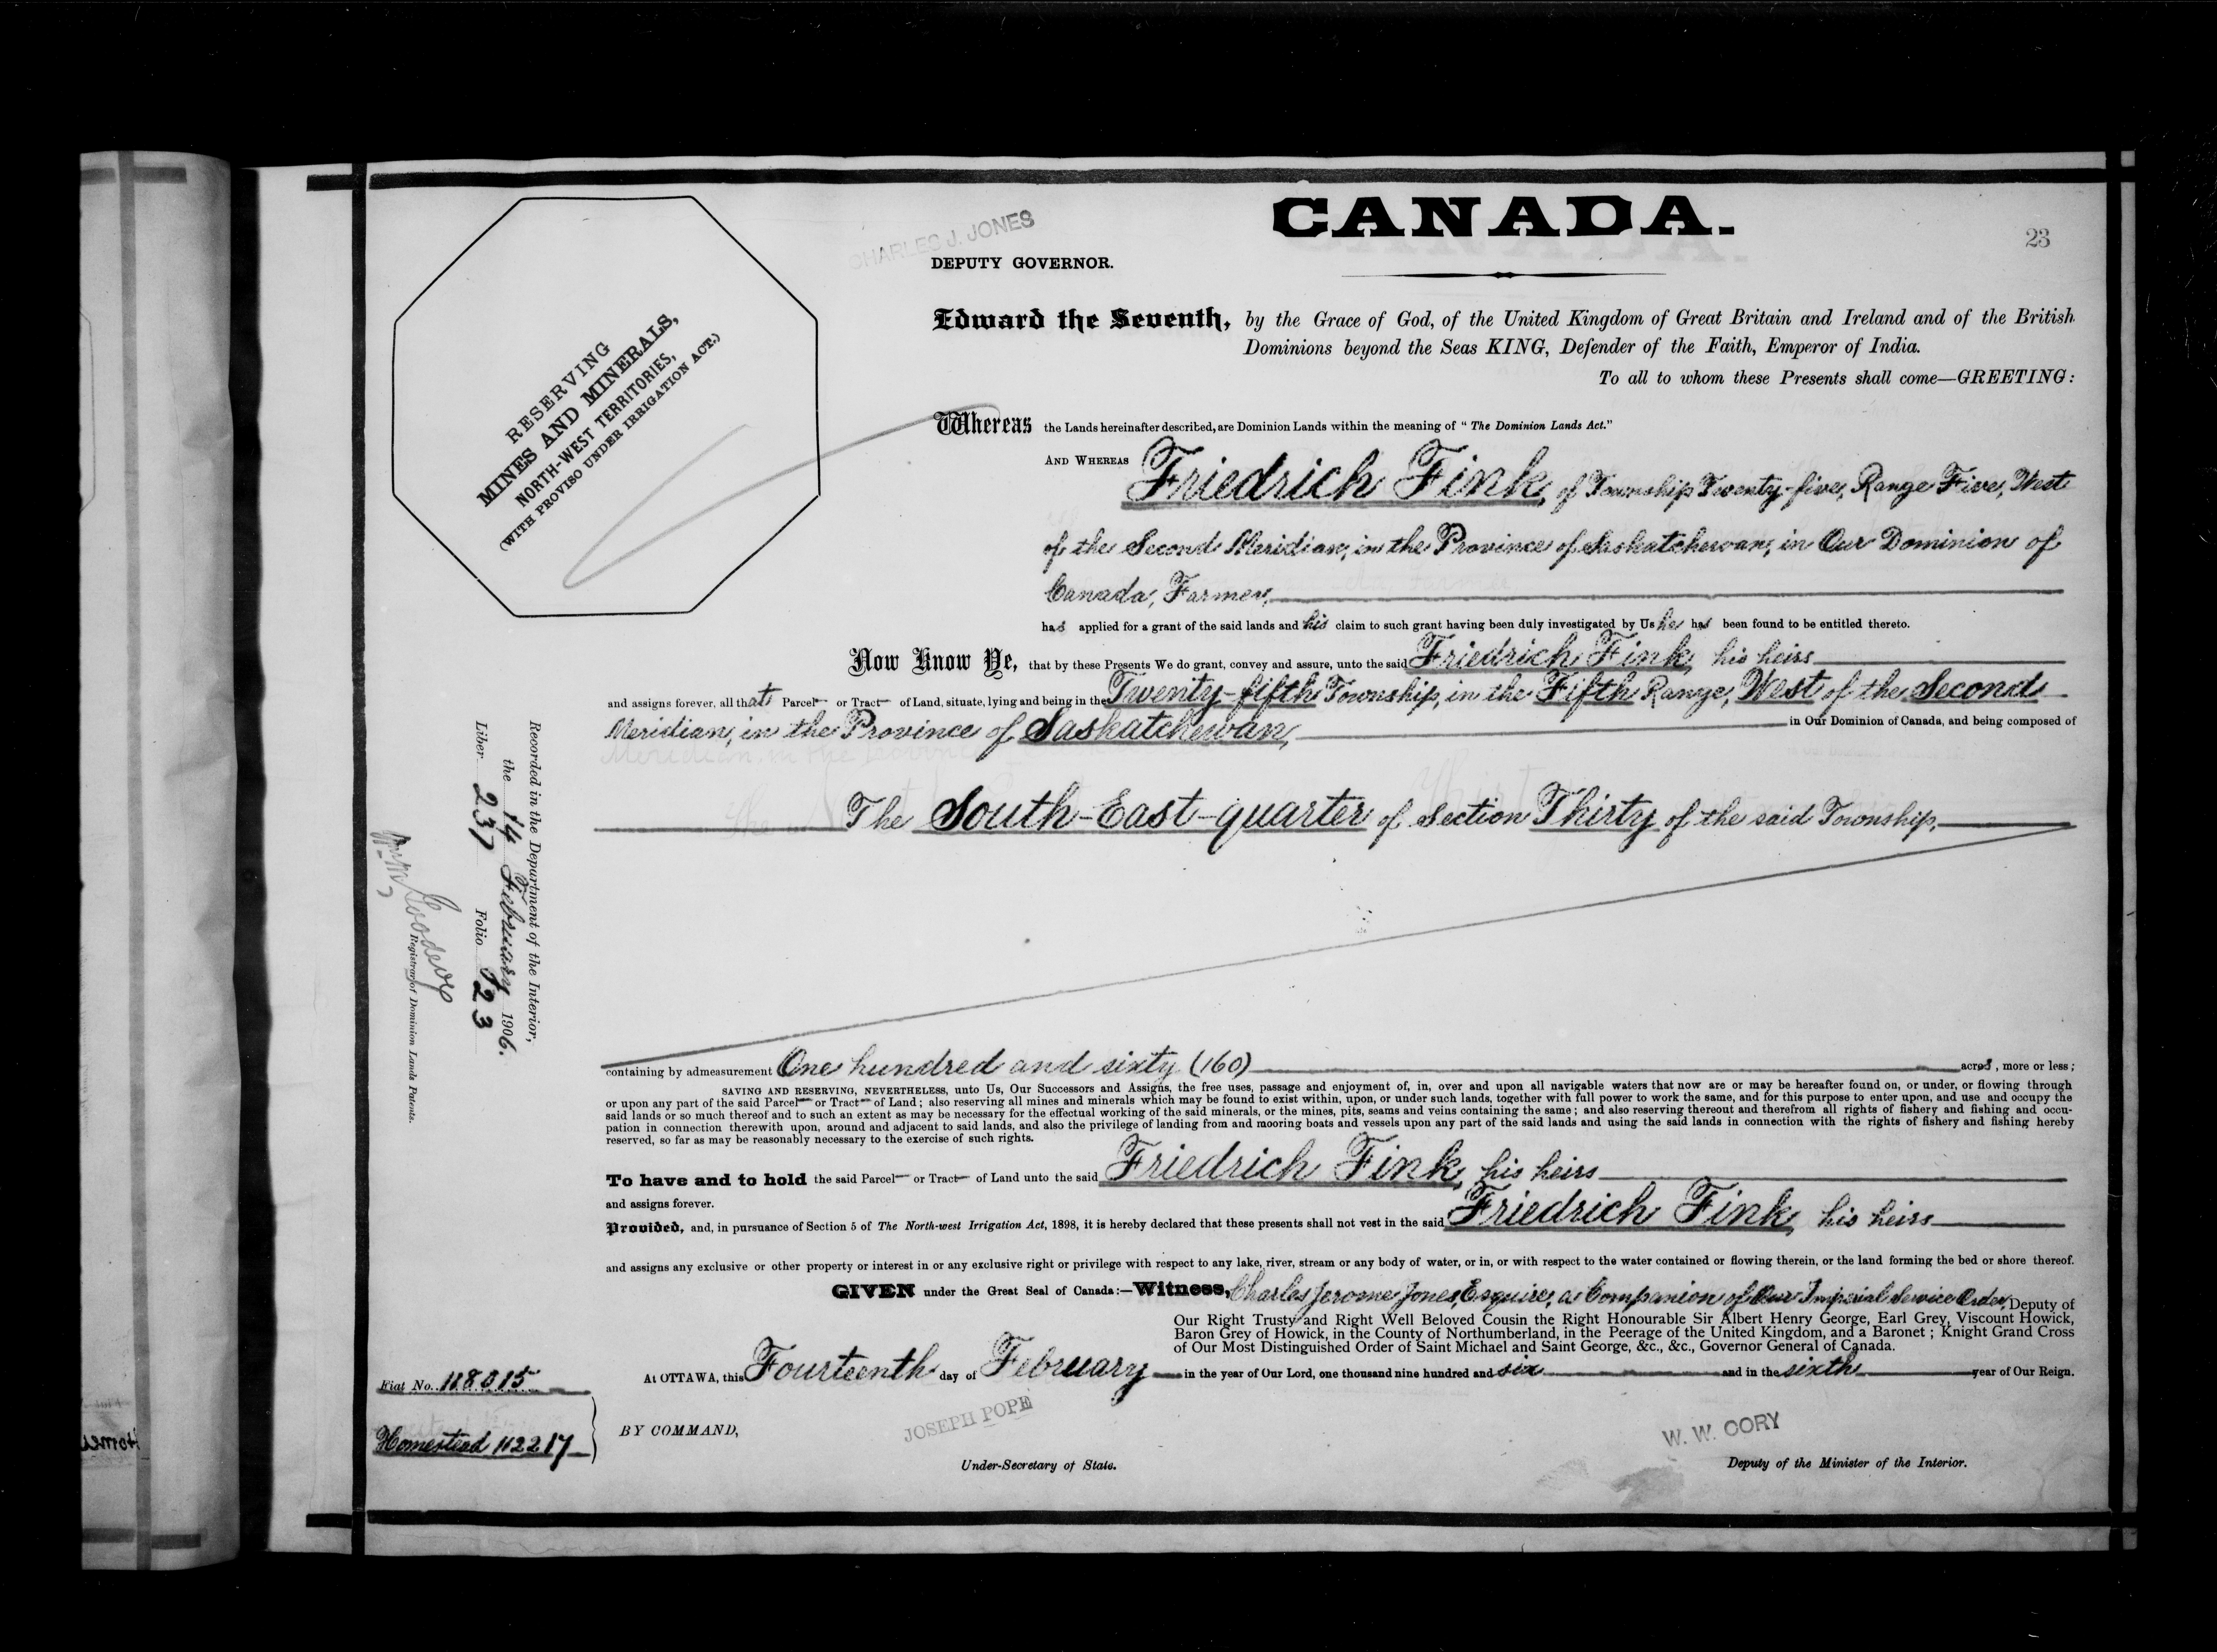 CANADA.
23
CHARLES J. JONES
DEPUTY GOVERNOR.
RESERVING
MINES AND MINERALS,
NORTH-WEST TERRITORIES,
(WITH PROVISO UNDER IRRIGATION ACT.)
Edward the Seventh, by the Grace of God, of the United Kingdom of Great Britain and Ireland and of the British
Dominions beyond the Seas KING, Defender of the Faith, Emperor of India.
To all to whom these Presents shall come—GREETING:
Whereas the Lands hereinafter described, are Dominion Lands within the meaning of "The Dominion Lands Act."
AND WHEREAS Friedrich Fink, of Township Twenty-five, Range Five, West
of the Second Meridian, in the Province of Saskatchewan, in Our Dominion of
Canada, Farmer,
has applied for a grant of the said lands and his claim to such grant having been duly investigated by Us he has been found to be entitled thereto.
Now Know Ye, that by these Presents We do grant, convey and assure, unto the said Friedrich Fink, his heirs
and assigns forever, all that Parcel or Tract of Land, situate, lying and being in the Twenty-fifth Township, in the Fifth Range, West of the Second
Meridian, in the Province of Saskatchewan, in Our Dominion of Canada, and being composed of
The South-East-quarter of Section Thirty of the said Township.
Recorded in the Department of the Interior,
the 14 February 1906.
Liber 237 Folio 123
Registrar of Dominion Lands Patents.
containing by admeasurement One hundred and sixty (160) acres, more or less;
SAVING AND RESERVING, NEVERTHELESS, unto Us, Our Successors and Assigns, the free uses, passage and enjoyment of, in, over and upon all navigable waters that now are or may be hereafter found on, or under, or flowing through
or upon any part of the said Parcel or Tract of Land; also reserving all mines and minerals which may be found to exist within, upon, or under such lands, together with full power to work the same, and for this purpose to enter upon, and use and occupy the
said lands or so much thereof and to such an extent as may be necessary for the effectual working of the said minerals, or the mines, pits, seams and veins containing the same; and also reserving thereout and therefrom all rights of fishery and fishing and occu-
pation in connection therewith upon, around and adjacent to said lands, and also the privilege of landing from and mooring boats and vessels upon any part of the said lands and using the said lands in connection with the rights of fishery and fishing hereby
reserved, so far as may be reasonably necessary to the exercise of such rights.
To have and to hold the said Parcel or Tract of Land unto the said Friedrich Fink, his heirs
and assigns forever.
Provided, and, in pursuance of Section 5 of The North-west Irrigation Act, 1898, it is hereby declared that these presents shall not vest in the said Friedrich Fink, his heirs
and assigns any exclusive or other property or interest in or any exclusive right or privilege with respect to any lake, river, stream or any body of water, or in, or with respect to the water contained or flowing therein, or the land forming the bed or shore thereof.
GIVEN under the Great Seal of Canada:—Witness, Charles Jerome Jones, Esquire, a Companion of Our Imperial Service Order, Deputy of
Our Right Trusty and Right Well Beloved Cousin the Right Honourable Sir Albert Henry George, Earl Grey, Viscount Howick,
Baron Grey of Howick, in the County of Northumberland, in the Peerage of the United Kingdom, and a Baronet; Knight Grand Cross
of Our Most Distinguished Order of Saint Michael and Saint George, &c., &c., Governor General of Canada.
At OTTAWA, this Fourteenth day of February in the year of Our Lord, one thousand nine hundred and six and in the sixth year of Our Reign.
Fiat No. 118015
Homestead 112217
BY COMMAND,
JOSEPH POPE
Under-Secretary of State.
W. W. CORY
Deputy of the Minister of the Interior.